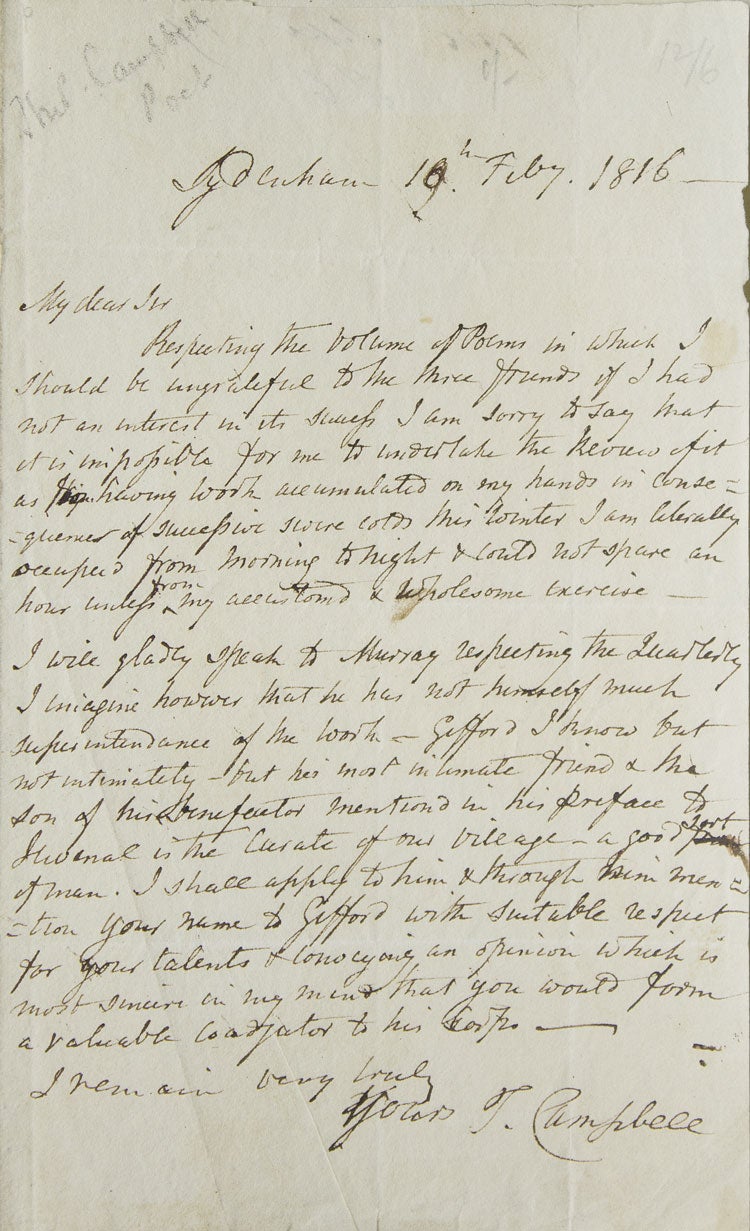 Thos. Campbell
Poet
12/6
Sydenham 19th Feby. 1816
My dear Sir
Respecting the Volume of Poems in which I
should be ungrateful to the three friends if I had
not an interest in its success I am sorry to say that
it is impossible for me to undertake the Review of it
as having work accumulated on my hands in conse=
=quence of successive severe colds this winter I am literally
occupied from morning to night & could not spare an
hour unless from my accustomd & wholesome exercise —
I will gladly speak to Murray respecting the Quarterly
I imagine however that he has not himself much
superintendance of the work — Gifford I know but
not intimately — but his most intimate friend & the
son of his benefactor mentiond in his Preface to
Juvenal is the Curate of our Village — a good sort
of man. I shall apply to him & through him men=
=tion your name to Gifford with suitable respect
for your talents & conveying an opinion which is
most sincere in my mind that you would form
a valuable coadjutor to his corps —
I remain very truly
Yours T. Campbell